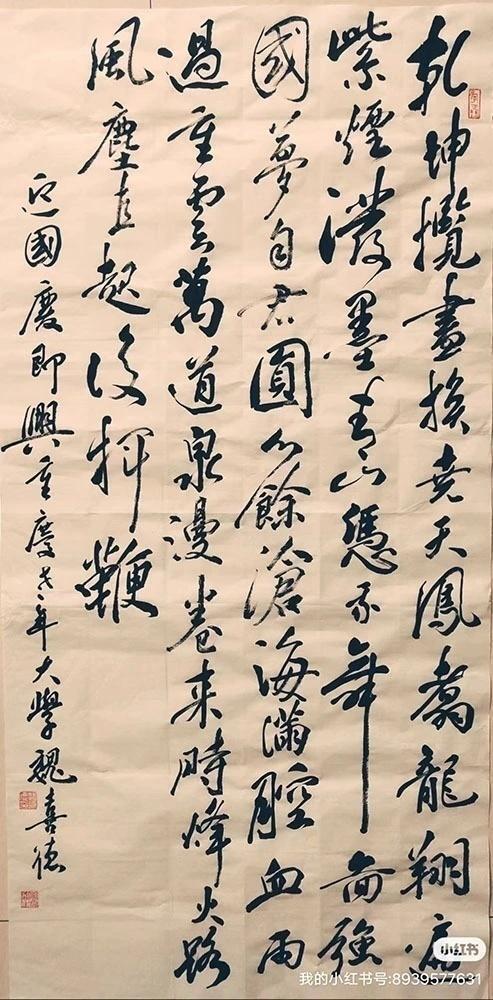 乾坤攬畫換堯天鳳翥龍翔
紫煙潑墨青山憑舞富強
國夢自君圓心餘滄海滿腔血雨
過重雲萬道泉漫卷来時烽火路
風塵直起復揮鞭
迎國慶即興重慶老年大學魏喜德
小红书
我的小红书号:8939577631